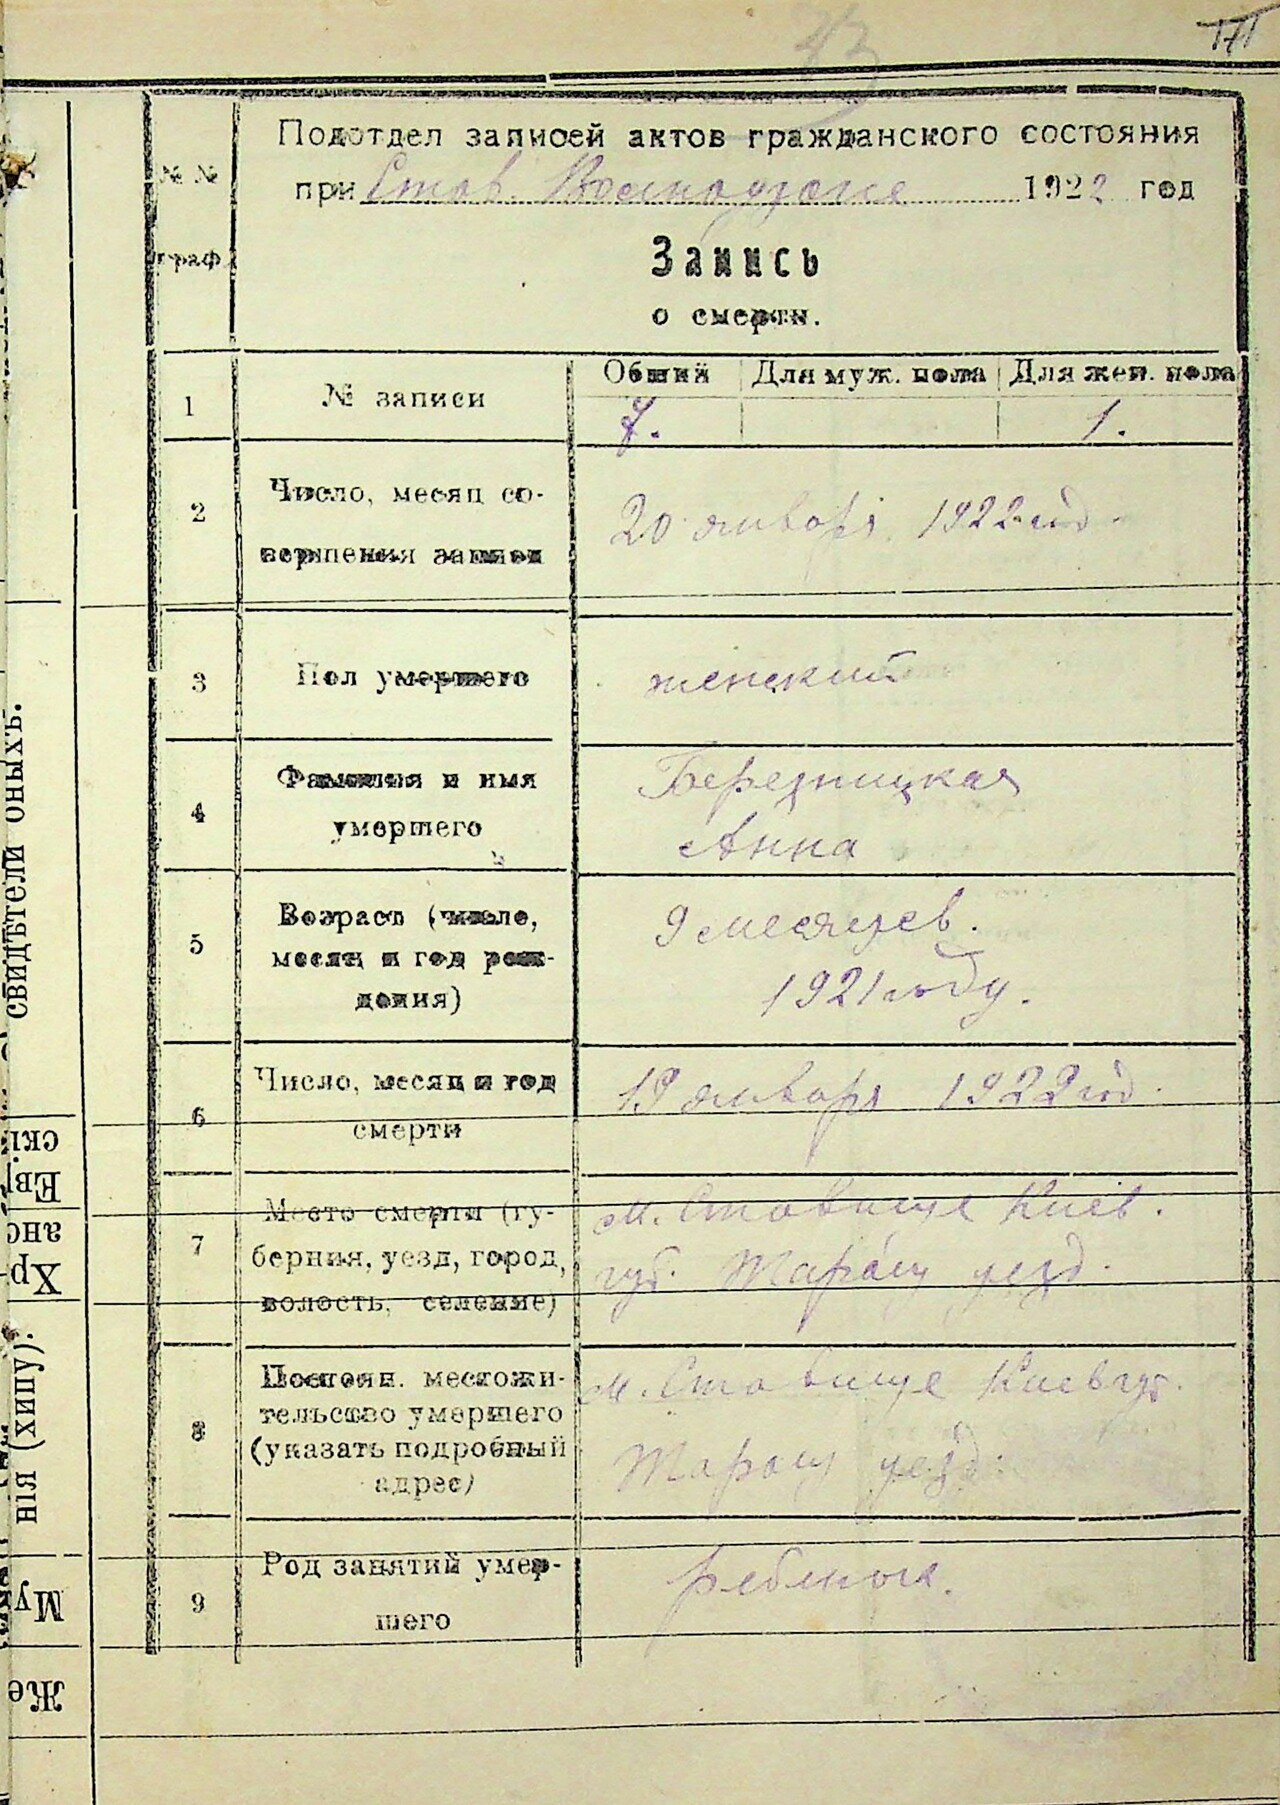 171
Подотдел записей актов гражданского состояния
при Став. 1922 год
№ №
граф
Запись
о смерти.
1 № записи
Общий Для муж. пола Для жен. пола
7. 1.
2 Число, месяц со-
вершения записи
20 января 1922 год.
3 Пол умершего женский
4 Фамилия и имя
умершего
Березницкая
Анна
5 Возраст (число,
месяц и год рож-
дения)
9 месяцев.
1921 году.
6 Число, месяц и год
смерти
19 января 1922 год.
7 Место смерти (гу-
берния, уезд, город,
волость, селение)
м. Ставище Киев.
губ. Таращ уезд.
8 Постоян. местожи-
тельство умершего
(указать подробный
адрес)
м. Ставище Киев губ.
Таращ уезд.
9 Род занятий умер-
шего
ребенок.
свидѣтели оныхъ.
нія (хипу).
скі
Евр
анс
Хр
Му
Же